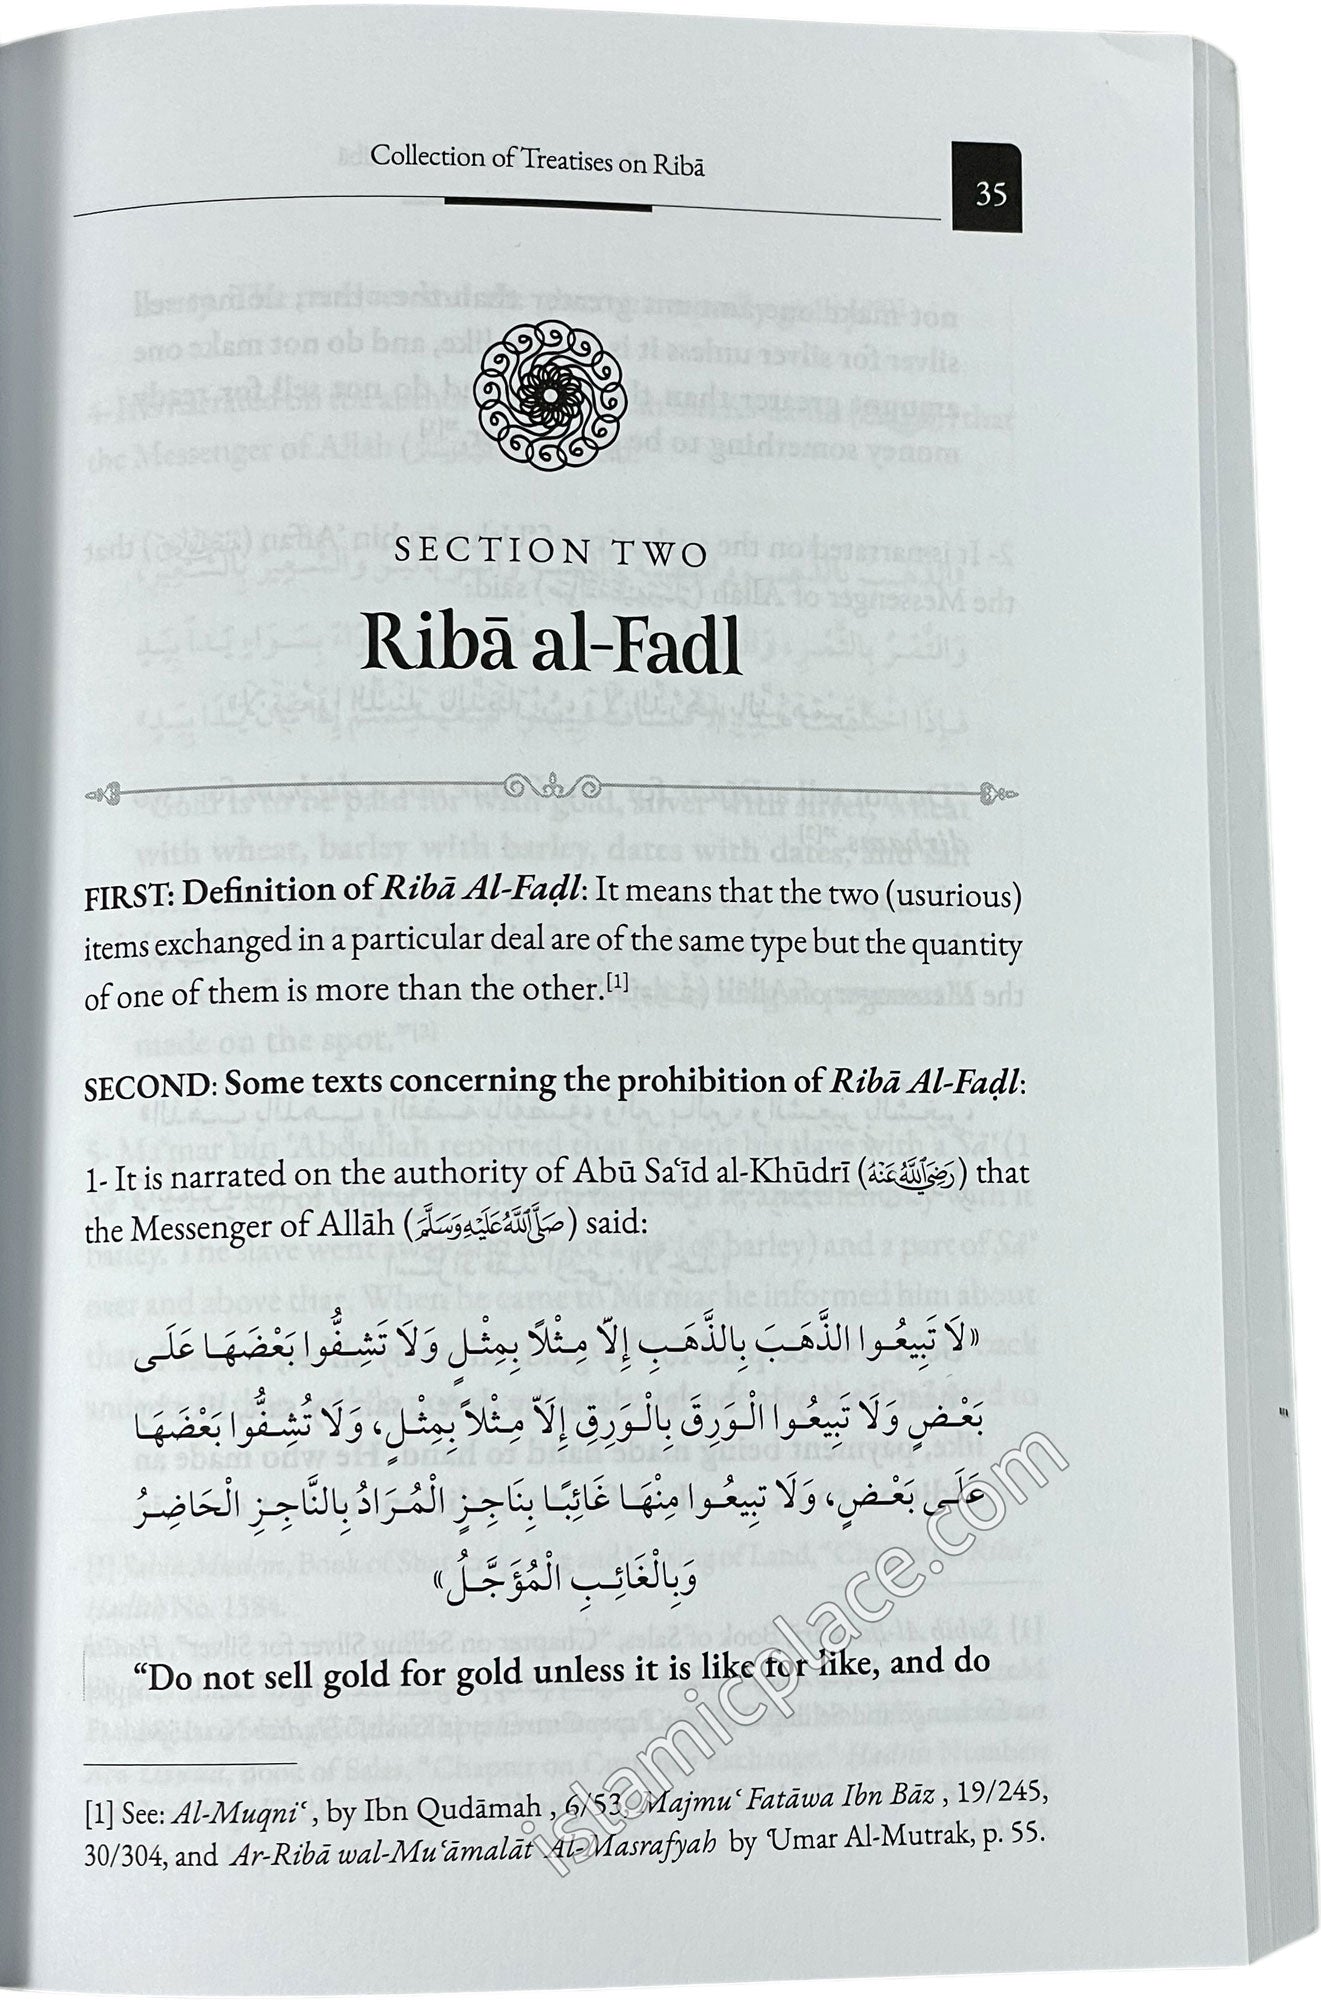 Collection of Treatises on Ribā
35
SECTION TWO
Ribā al-Fadl
FIRST: Definition of Ribā Al-Faḍl: It means that the two (usurious)
items exchanged in a particular deal are of the same type but the quantity
of one of them is more than the other.[1]
SECOND: Some texts concerning the prohibition of Ribā Al-Faḍl:
1- It is narrated on the authority of Abū Saʿīd al-Khūdrī (رَضِيَ اللَّهُ عَنْهُ) that
the Messenger of Allāh (صَلَّى اللَّهُ عَلَيْهِ وَسَلَّمَ) said:
«لَا تَبِيعُوا الذَّهَبَ بِالذَّهَبِ إِلاّ مِثْلاً بِمِثْلٍ وَلَا تَشِفُّوا بَعْضَهَا عَلَى
بَعْضٍ وَلَا تَبِيعُوا الْوَرِقَ بِالْوَرِقِ إِلاّ مِثْلاً بِمِثْلٍ، وَلَا تُشِفُّوا بَعْضَهَا
عَلَى بَعْضٍ، وَلَا تَبِيعُوا مِنْهَا غَائِبًا بِنَاجِزٍ الْمُرَادُ بِالنَّاجِزِ الْحَاضِرُ
وَبِالْغَائِبِ الْمُؤَجَّلُ»
“Do not sell gold for gold unless it is like for like, and do
[1] See: Al-Muqniʿ, by Ibn Qudāmah , 6/53, Majmuʿ Fatāwa Ibn Bāz , 19/245,
30/304, and Ar-Ribā wal-Muʿāmalāt Al-Masrafyah by ʿUmar Al-Mutrak, p. 55.
islamicplace.com